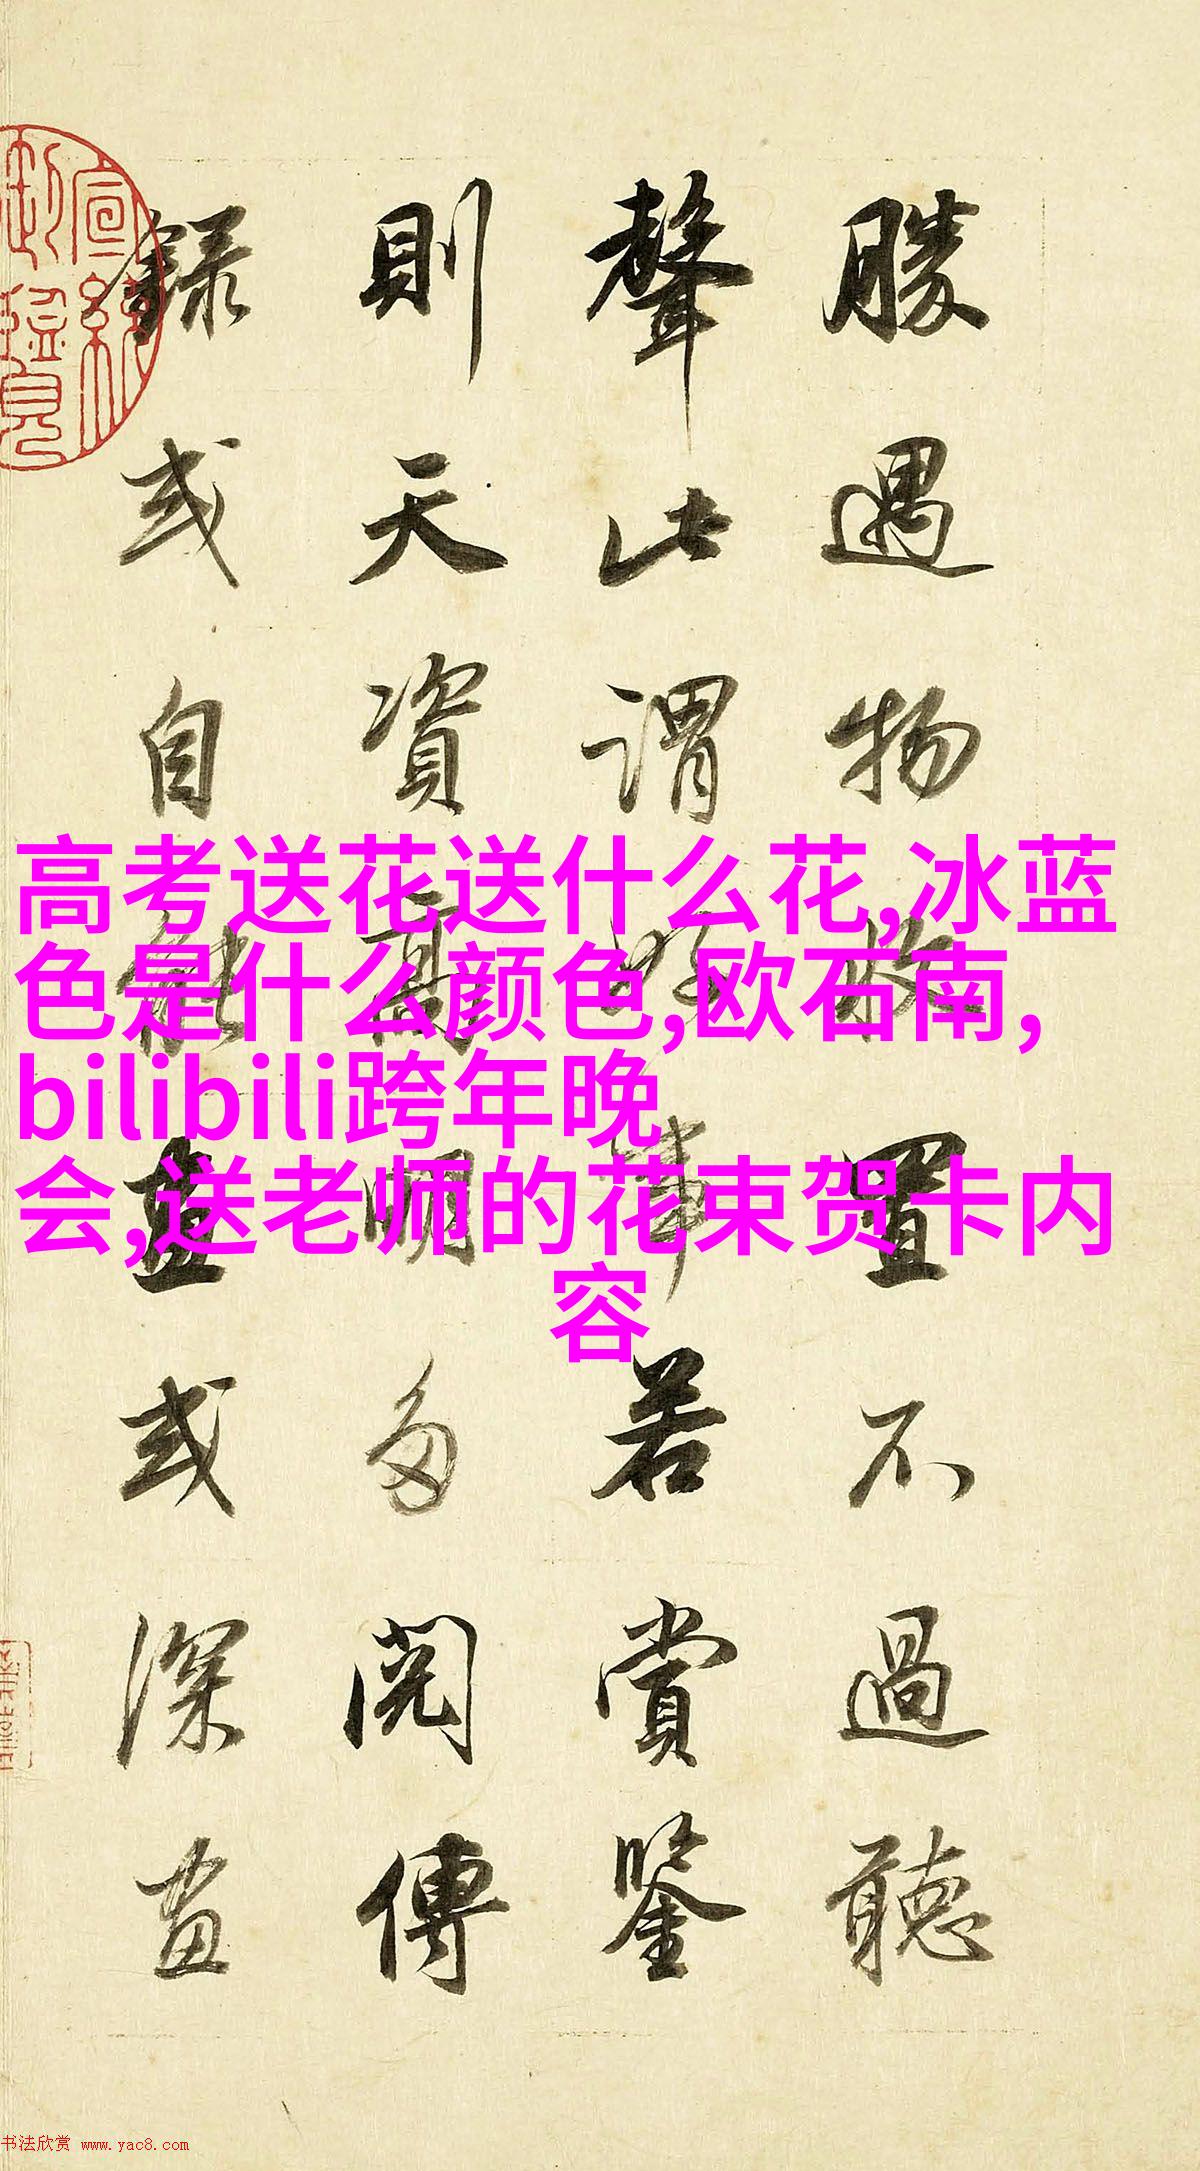 勝遇物收置不過聽
聲此謂好事若賞鑒
則天資高明多閱傳
錄或自能畫或深畫
宣統御覽
高考送花送什么花,冰蓝
色是什么颜色,欧石南,
bilibili跨年晚
会,送老师的花束贺卡内
容
书法欣赏 www.yac8.com